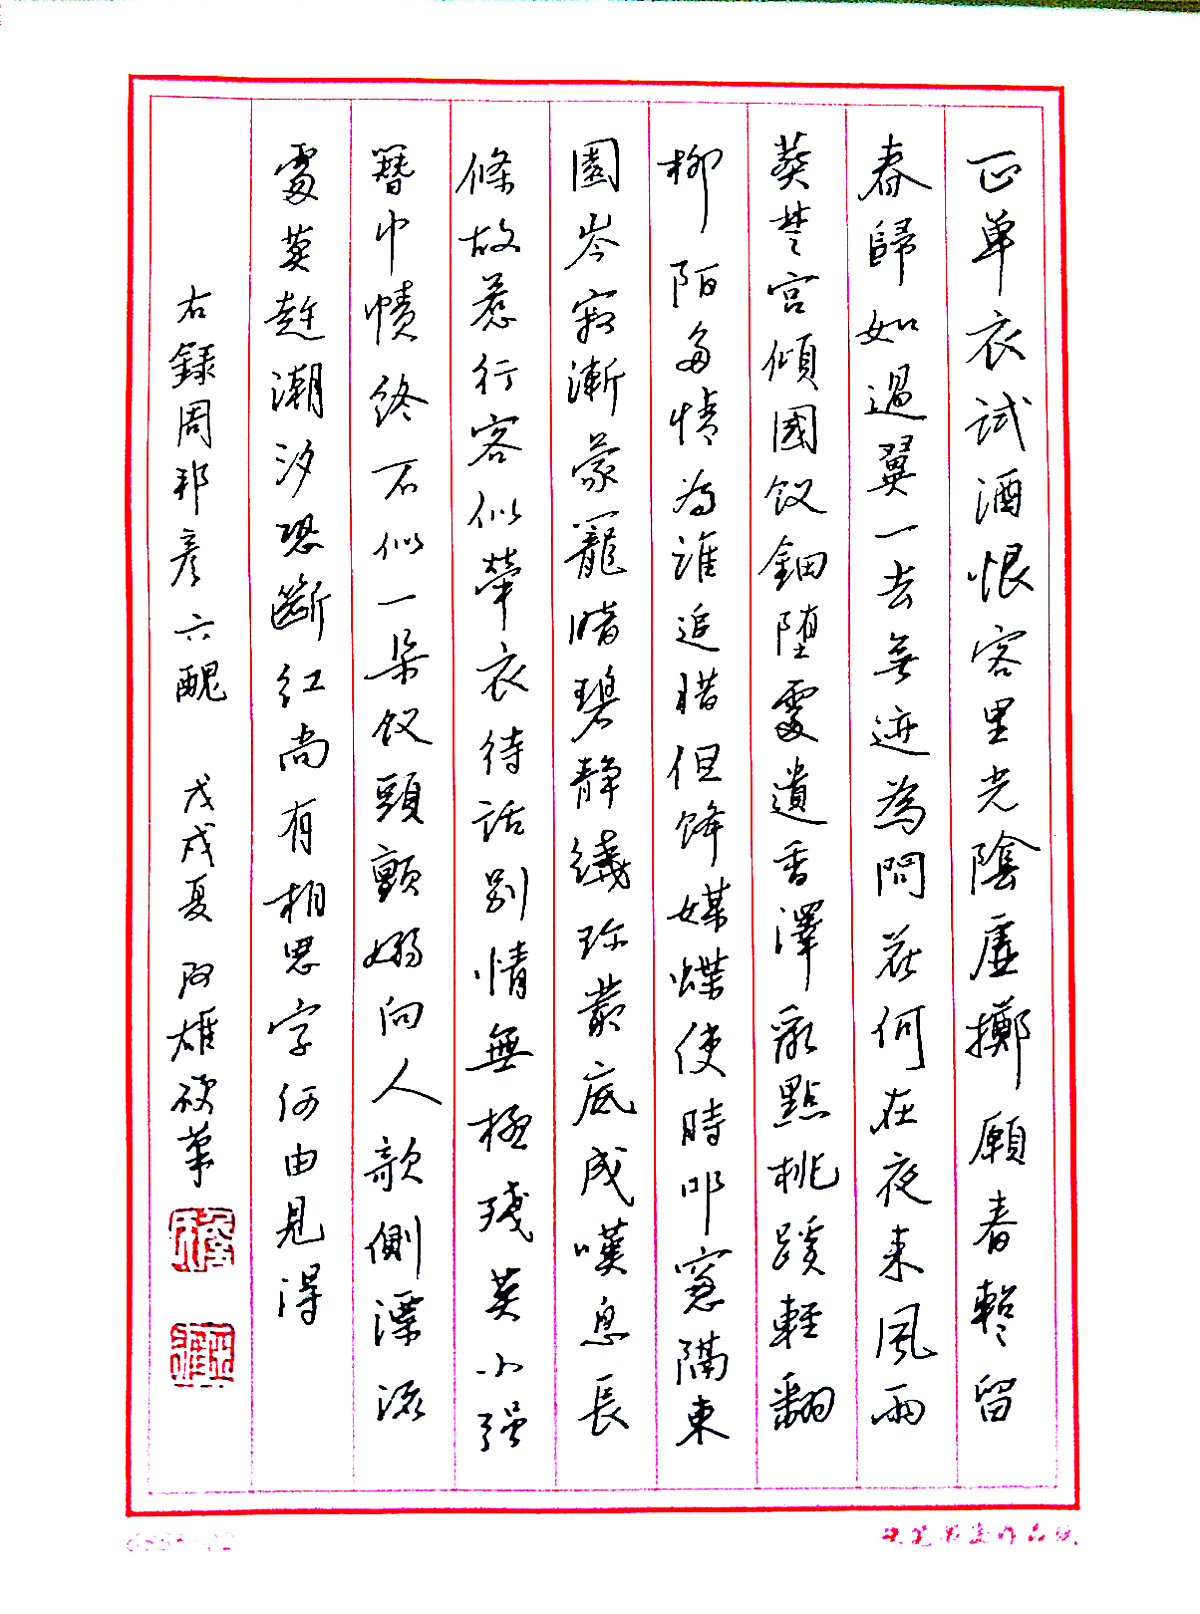 正单衣试酒恨客里光陰虚擲願春暫留
春歸如過翼一去無迹為問花何在夜来風雨
葬楚宫傾國釵鈿堕處遺香澤亂點桃蹊輕翻
柳陌多情為誰追惜但蜂媒蝶使時叩窻隔東
園岑寂漸蒙籠暗碧静繞珍叢底成嘆息長
條故惹行客似牽衣待話别情無極殘英小强
簪巾幘終不似一朵釵頭顫嫋向人欹側漂流
處莫趁潮汐恐斷红尚有相思字何由見得
右録周邦彦六醜 戊戌夏 阿雄硬筆
硬笔书法作品纸